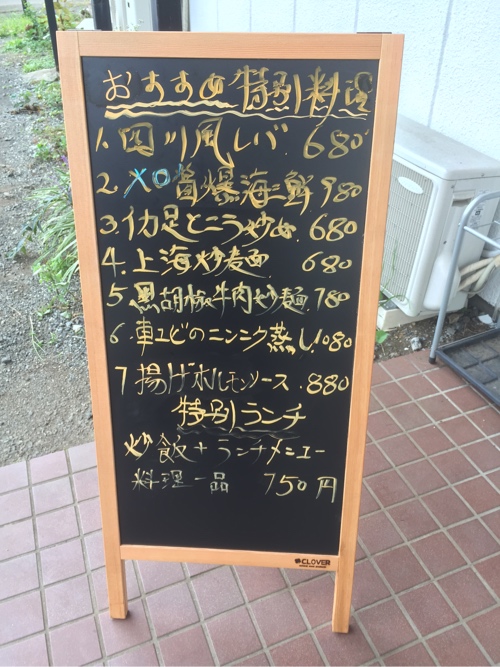 おすすめ特別料理
1. 四川風レバ 680
2. XO醤爆海鮮 980
3. イカ足とニラ炒め 680
4. 上海炒麺 680
5. 黒胡椒牛肉炒麺 780
6. 車エビのニンニク蒸し 1080
7 揚げホルモンソース 880
特別ランチ
炒飯+ランチメニュー
料理一品 750円
CLOVER